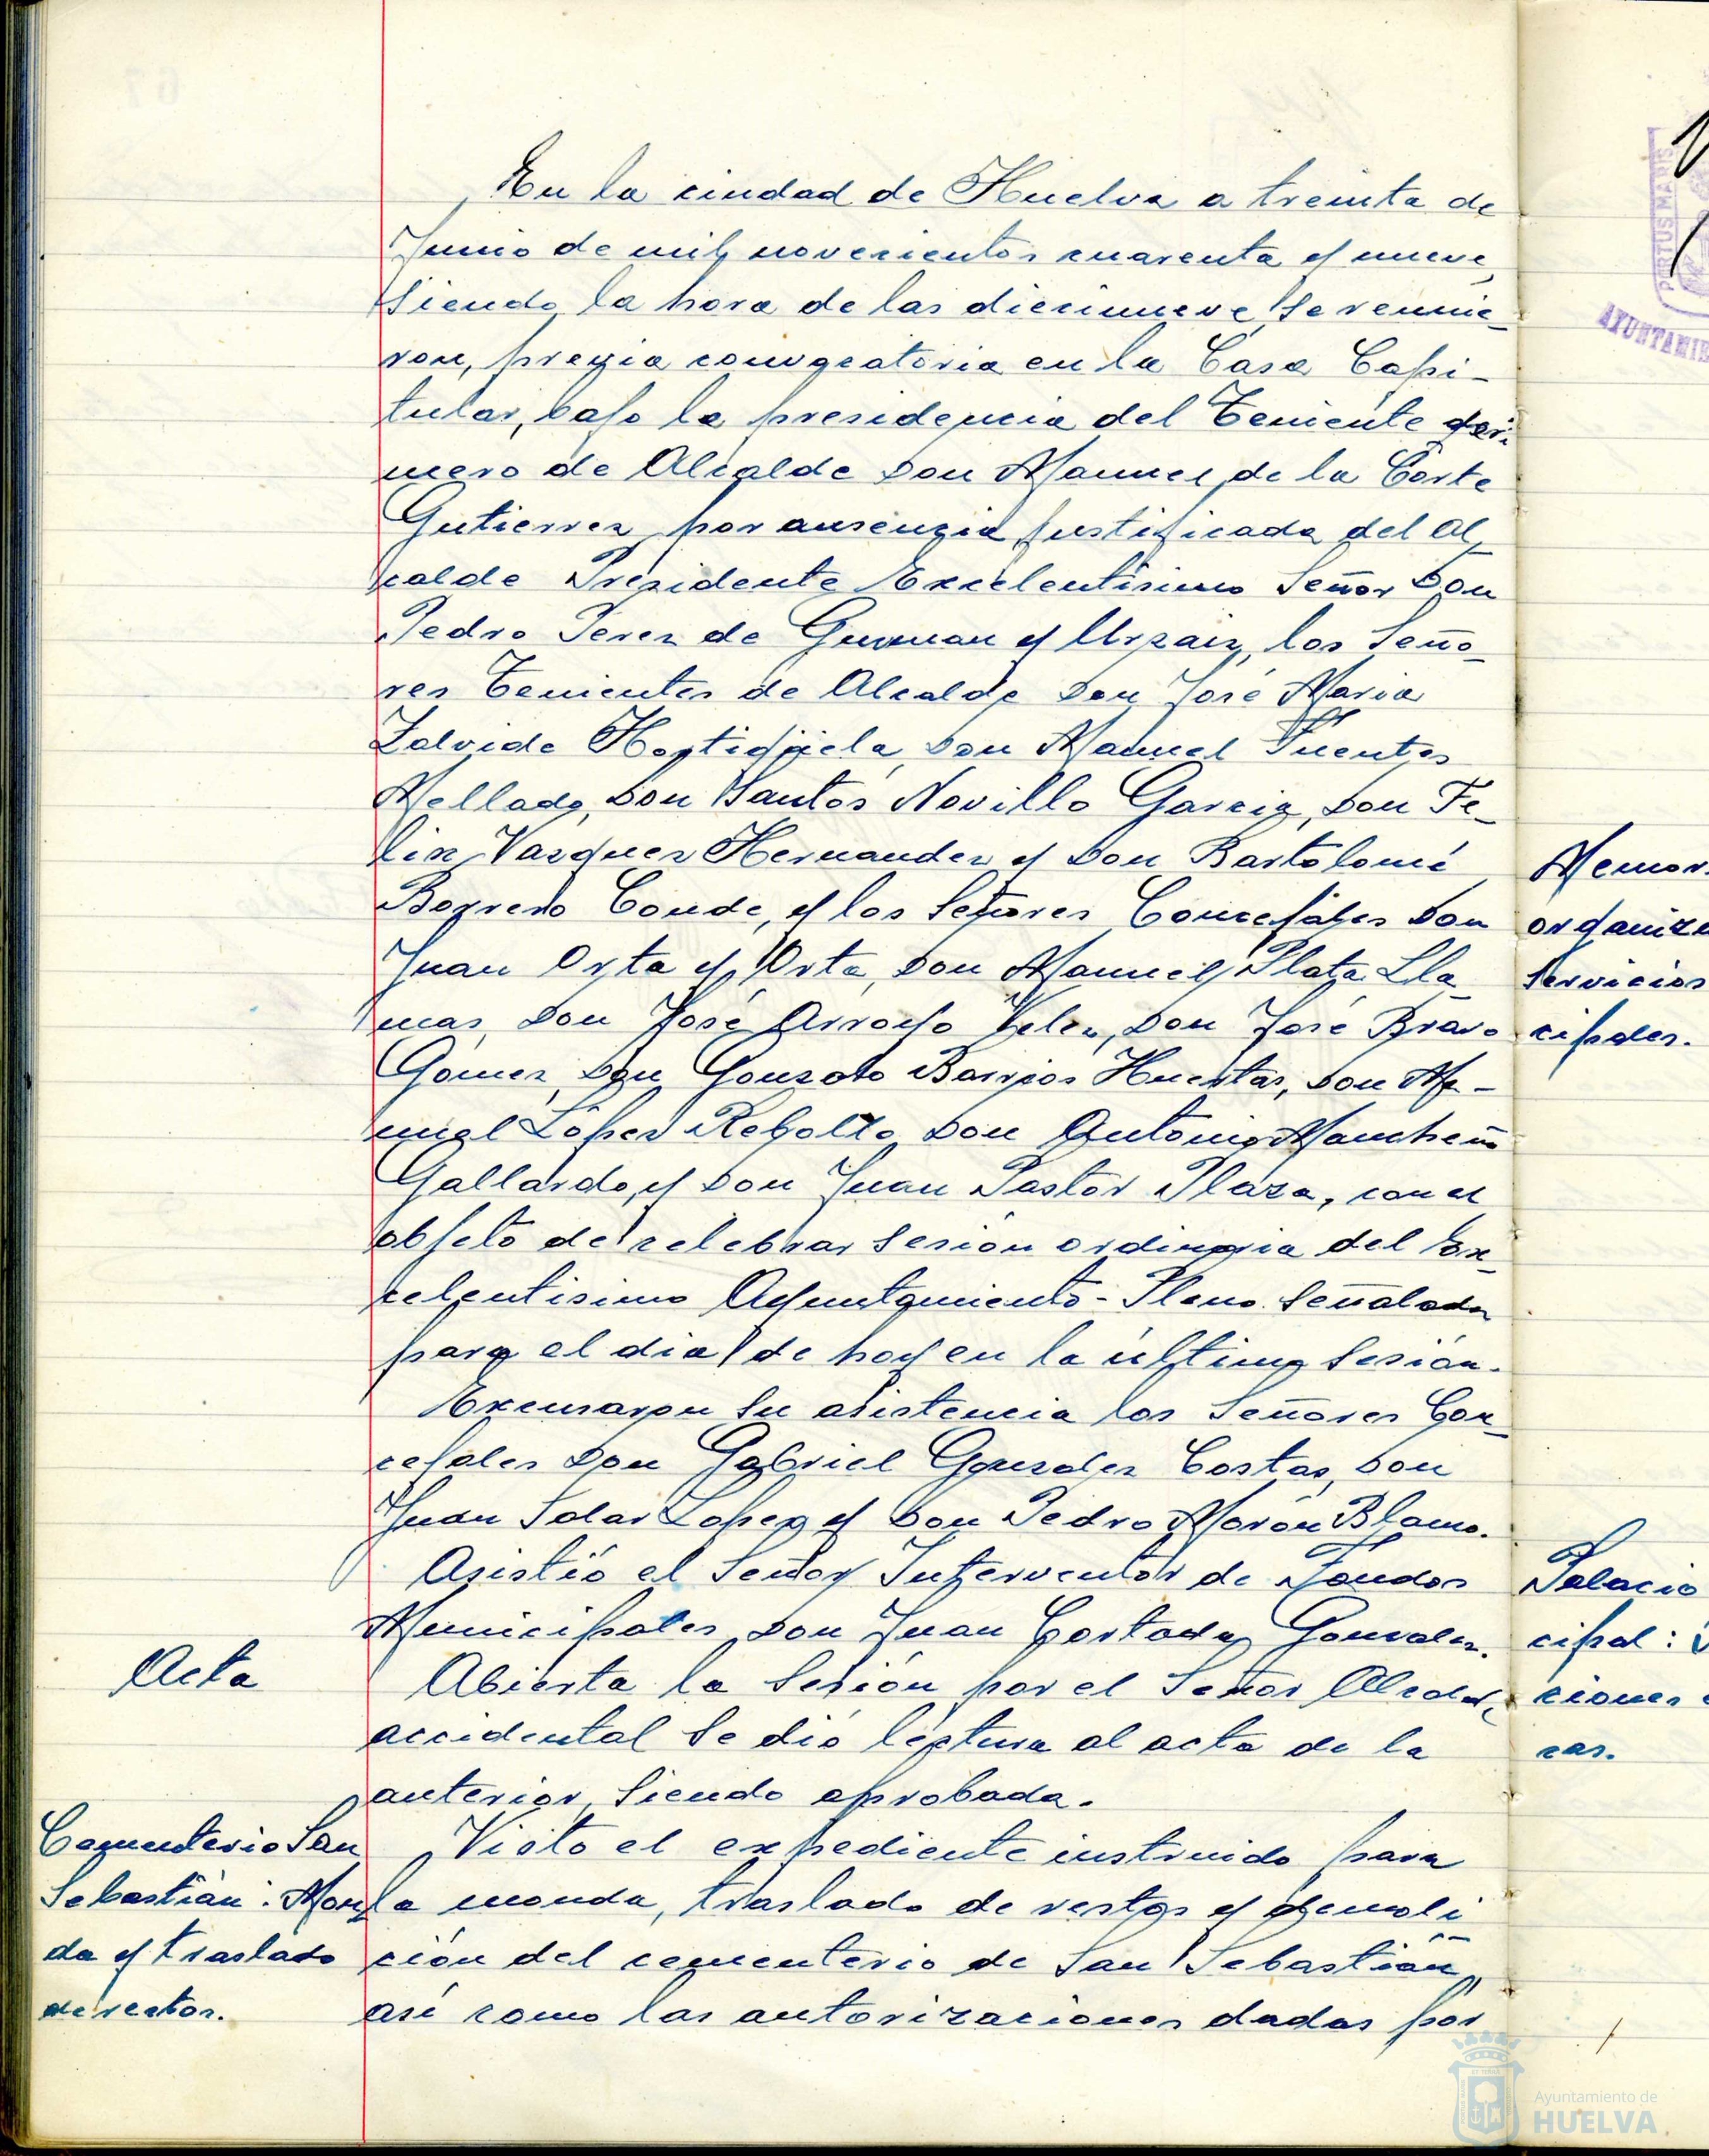 En la ciudad de Huelva a treinta de
Junio de mil novecientos cuarenta y nueve,
siendo la hora de las diecinueve se reunie-
ron, previa convocatoria en la Casa Capi-
tular, bajo la presidencia del Teniente pri-
mero de Alcalde Don Manuel de la Corte
Gutierrez por ausencia justificada del Al-
calde Presidente Excelentísimo Señor Don
Pedro Perez de Guzman y Urzaiz, los Seño-
res Tenientes de Alcalde Don José Maria
Zalvide Hortigüela, Don Manuel Fuentes
Mellado, Don Santos Novillo Garcia, Don Fe-
lix Vazquez Hernandez y Don Bartolomé
Borrero Conde, y los Señores Concejales Don
Juan Orta y Orta, Don Manuel Plata Lla-
mas, Don José Arroyo Velez, Don José Bravo
Gómez, Don Gonzalo Barrios Huestas, Don Ma-
nuel López Rebollo, Don Antonio Mancheño
Gallardo, y Don Juan Pastor Plaza, con el
objeto de celebrar sesión ordinaria del Ex-
celentisimo Ayuntamiento-Pleno señalada
para el dia de hoy en la última sesión.
Excusaron su asistencia los Señores Con-
cejales Don Gabriel Gonzalez Costas, Don
Juan Solar Lopez y Don Pedro Morón Blanco.
Asistió el Señor Interventor de Fondos
Municipales, Don Juan Cortada Gonzalez.
Acta
Abierta la sesión por el Señor Alcalde
accidental se dió lectura al acta de la
anterior, siendo aprobada.
Cementerio San
Sebastián: Mon-
da y traslado
de restos.
Visto el expediente instruido para
la monda, traslado de restos y demoli-
ción del cementerio de San Sebastián,
así como las autorizaciones dadas por
Memor
organiza
servicios
cipales.
Palacio
cipal:
ciones
cas.
PORTUS MARIS
AYUNTAMIE
Ayuntamiento de
HUELVA